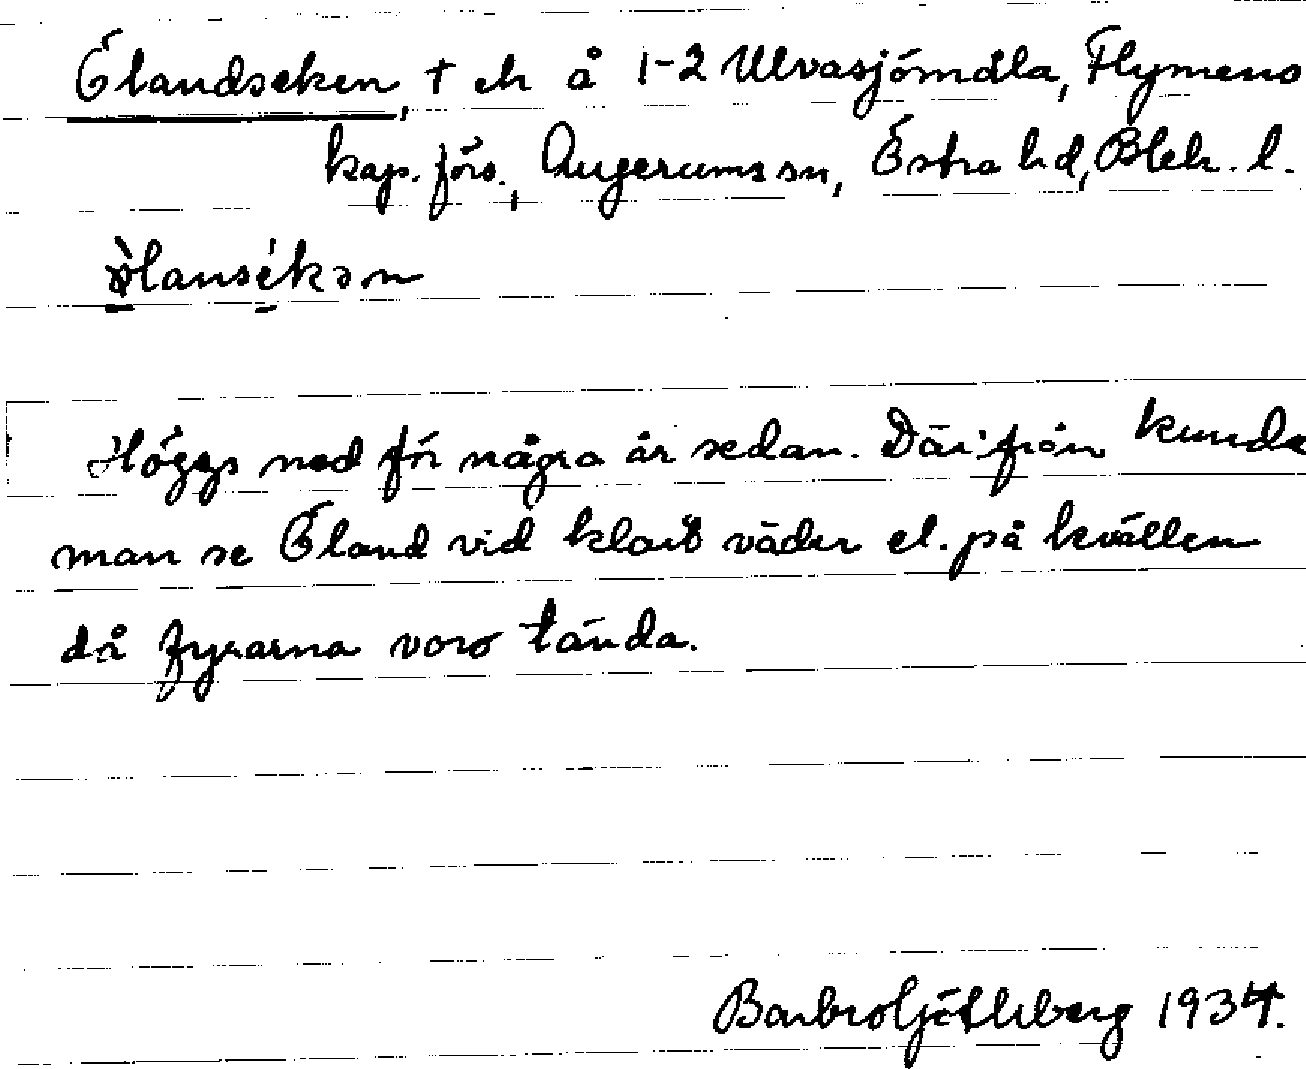 Ölandseken, † ek å 1-2 Ulvasjömåla, Flymens
kap. förs., Augerums sn, Östra hd, Blek. l.
ø̀lansékən
Höggs ned för några år sedan. Därifrån kunde
man se Öland vid klart väder el. på kvällen
då fyrarna voro tända.
Barbro 1934.